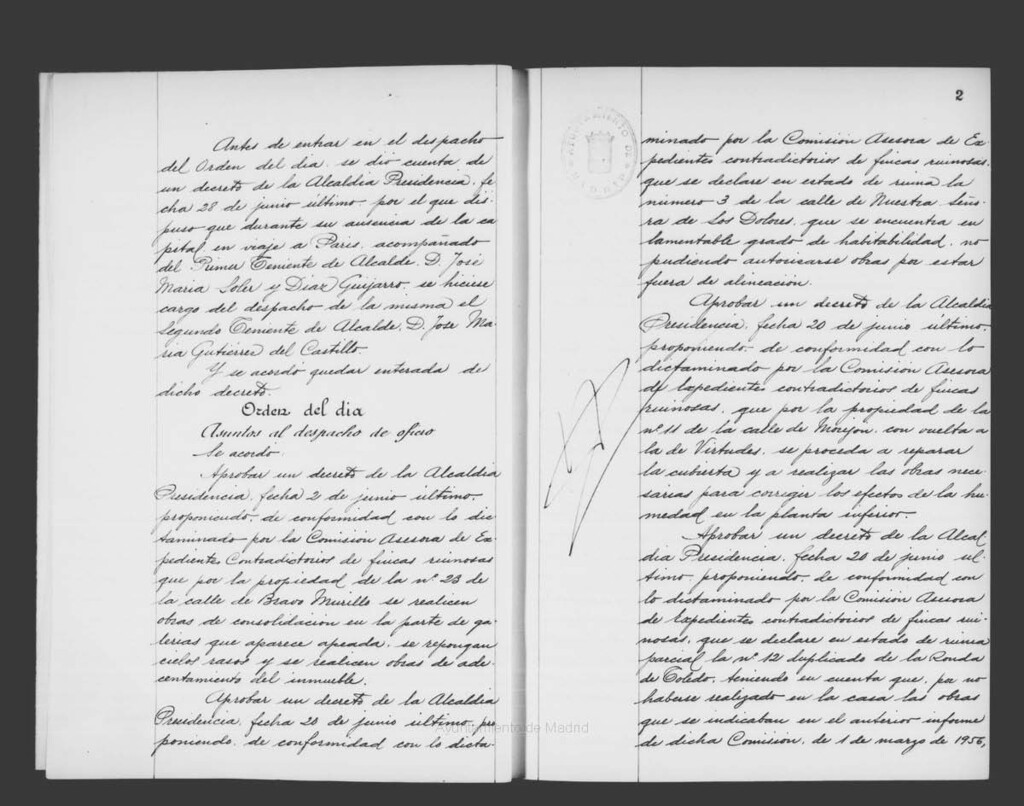 Antes de entrar en el despacho
del Orden del dia, se dió cuenta de
un decreto de la Alcaldia Presidencia, fe
cha 28 de junio último, por el que dis-
puso que durante su ausencia de la ca
pital, en viaje a Paris, acompañado
del Primer Teniente de Alcalde, D. José
Maria Soler y Diaz Guijarro, se hiciese
cargo del despacho de la misma el
Segundo Teniente de Alcalde, D. Jose Ma
ria Gutiérrez del Castillo.
Y se acordó quedar enterada de
dicho decreto.
Orden del dia
Asuntos al despacho de oficio
Se acordó:
Aprobar un decreto de la Alcaldia
Presidencia, fecha 2 de junio último,
proponiendo, de conformidad con lo dic-
taminado por la Comisión Asesora de Ex
pedientes Contradictorios de fincas ruinosas
que por la propiedad de la nº 23 de
la calle de Bravo Murillo se realicen
obras de consolidación en la parte de ga
lerias que aparece apeada, se repongan
cielos rasos y se realicen obras de ade
centamiento del inmueble.
Aprobar un decreto de la Alcaldia
Presidencia, fecha 20 de junio último, pro
poniendo, de conformidad con lo dicta-
Ayuntamiento de Madrid
2
AYUNTAMIENTO DE MADRID
minado por la Comisión Asesora de Ex
pedientes contradictorios de fincas ruinosas,
que se declare en estado de ruina la
número 3 de la calle de Nuestra Seño
ra de Los Dolores, que se encuentra en
lamentable grado de habitabilidad, no
pudiendo autorizarse obras por estar
fuera de alineación.
Aprobar un decreto de la Alcaldia
Presidencia, fecha 20 de junio último,
proponiendo, de conformidad con lo
dictaminado por la Comisión Asesora
de Expedientes contradictorios de fincas
ruinosas, que por la propiedad de la
nº 11 de la calle de Monjon, con vuelta a
la de Virtudes, se proceda a reparar
la cubierta y a realizar las obras nece-
sarias para corregir los efectos de la hu-
medad en la planta inferior.
Aprobar un decreto de la Alcal
dia Presidencia, fecha 20 de junio úl-
timo, proponiendo, de conformidad con
lo dictaminado por la Comisión Asesora
de Expedientes contradictorios de fincas rui-
nosas, que se declare en estado de ruina
parcial la nº 12 duplicado de la Ronda
de Toledo, teniendo en cuenta que, por no
haberse realizado en la casa las obras
que se indicaban en el anterior informe
de dicha Comisión, de 1 de marzo de 1956,